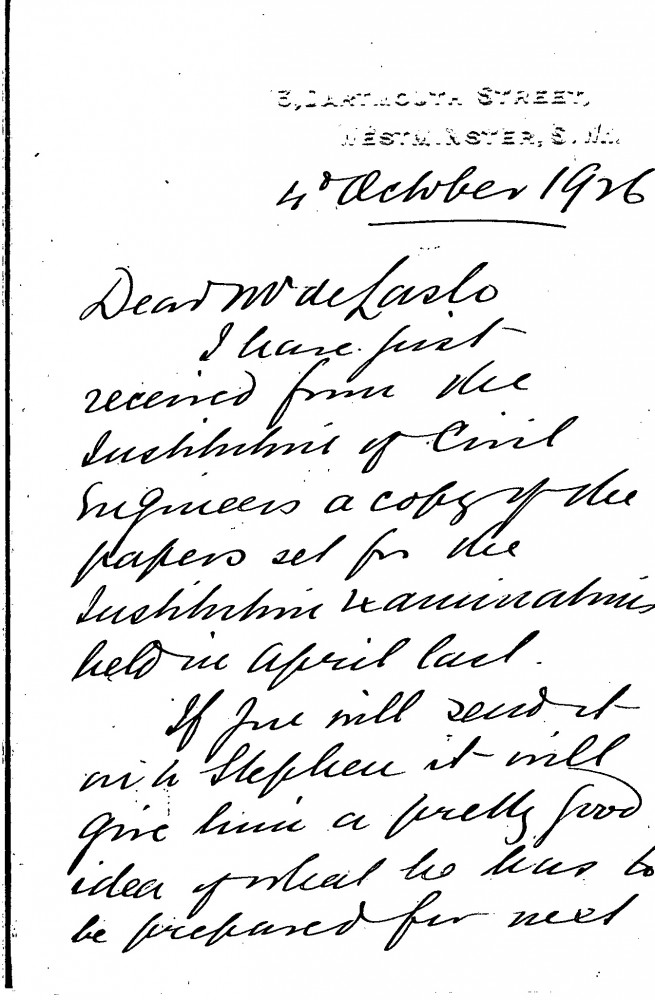 3, DARTMOUTH STREET,
WESTMINSTER, S.W.1.
4th October 1926
Dear Mr de Laslo
I have just
received from the
Institution of Civil
Engineers a copy of the
papers set for the
Institution Examinations
held in April last.
If you will send it
on to Stephen it will
give him a pretty good
idea of what he has to
be prepared for next